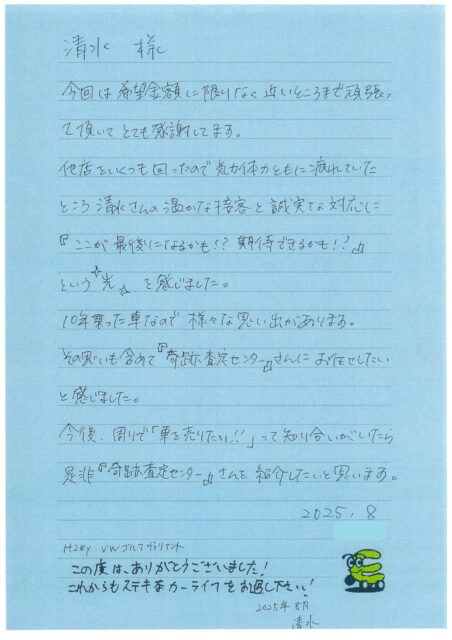 清水 様
今回は希望金額に限りなく近いところまで頑張っ
て頂いてとても感謝してます。
他店をいくつも回ったので気力体力ともに疲れていた
ところ清水さんの温かな接客と誠実な対応に
『ここが最後になるかも!? 期待できるかも!?』
という光を感じました。
10年乗った車なので様々な思い出があります。
その思いも含めて『奇跡査定センター』さんにお任せしたい
と感じました。
今後、周りで「車を売りたい!!」って知り合いがいたら
是非『奇跡査定センター』さんを紹介したいと思います。
2025.8
H28y VW ゴルフ ヴァリアント
この度は、ありがとうございました!
これからもステキなカーライフをお過し下さい!
2025年8月
清水